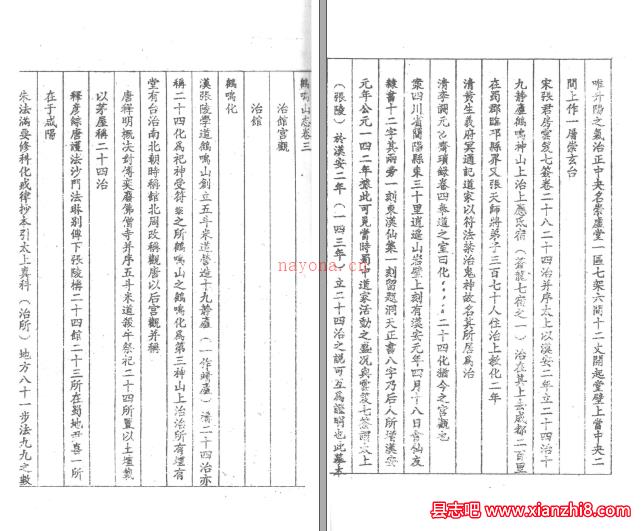 鶴鳴山志卷三
治館宮觀
治館
鶴鳴化
漢張陵學道鶴鳴山創立五斗米道營造十九靜廬（一作靖廬）清二十四治亦
稱二十四化為祀神受符籙之所鶴鳴山之鶴鳴化為第三神山上治治所有壇有
堂有台治南北朝時稱館北周改稱觀唐以后宮觀并稱
唐祥明概决對傅奕廢佛僧寺并序五斗米道報午祭祀二十四所置以土壇戴
以茅屋稱二十四治
釋彥悰唐護法沙門法琳別傳下張陵構二十四館二十三所在蜀地尹喜一所
在于咸陽
朱法滿要修科化戒律抄本引太上真科（治所）地方八十一步法九九之數
唯升陽之氣治正中央名崇虛堂一區七架六間十二丈開起堂壁上當中央二
間上作一層崇玄台
宋張君房雲笈七簽卷二十八二十四治并序太上以漢安二年立二十四治十
九靜廬鶴鳴神山上治上應氐宿（蒼龍七宿之一）治在其上去成都二百里
在蜀郡臨邛縣界又張天師將弟子三百七十人住治上教化二年
清黃生義府冥通記道家以符法禁治鬼神故名其所居為治
清李調元卍齋瑣錄卷四參道之室曰化：：：：二十四化猶今之宮觀也
案四川省簡陽縣東三十里逍遙山岩壁上刻有漢安元年四月十八日會仙友
隸書十二字其兩旁一刻東漢仙集一刻留題洞天正書八字乃后人所增漢安
元年公元一四二年據此可見當時蜀中道家活動之盛况與雲笈七簽謂太上
（張陵）於漢安二年（一四三年）立二十四治之說可互為證明也此摹本
nayona.cn
县志吧www.xianzhi8.com